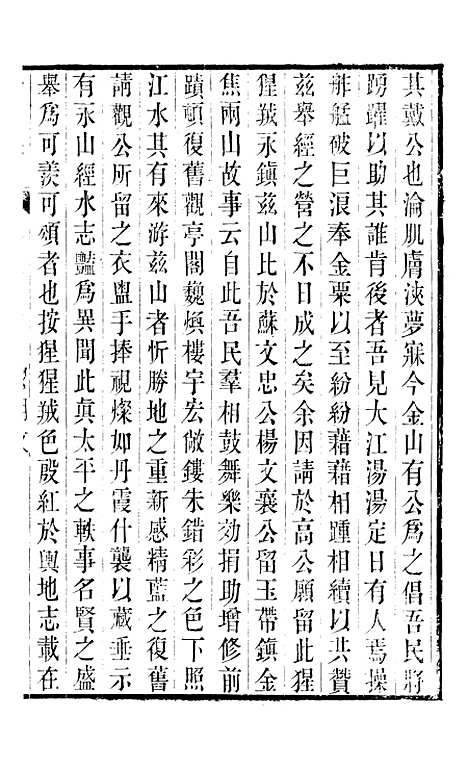 其戴公也淪肌膚浹夢寐今金山有公爲之倡吾民將
踴躍以助其誰肯後者吾見大江湯湯定日有人焉操
舴艋破巨浪奉金粟以至紛紛藉藉相踵相續以共贊
兹舉經之營之不日成之矣余因請於高公願留此猩
猩絨永鎮兹山比於蘇文忠公楊文襄公留玉帶鎮金
焦兩山故事云自此吾民羣相鼓舞樂効捐助增修前
蹟頓復舊觀亭閣巍煥樓宇宏敞鏤朱錯彩之色下照
江水其有來游兹山者忻勝地之重新感精藍之復舊
請觀公所留之衣盥手捧視燦如丹霞什襲以藏垂示
有永山經水志豔爲異聞此真太平之軼事名賢之盛
舉爲可羨可頌者也按猩猩絨色殷紅於輿地志載在